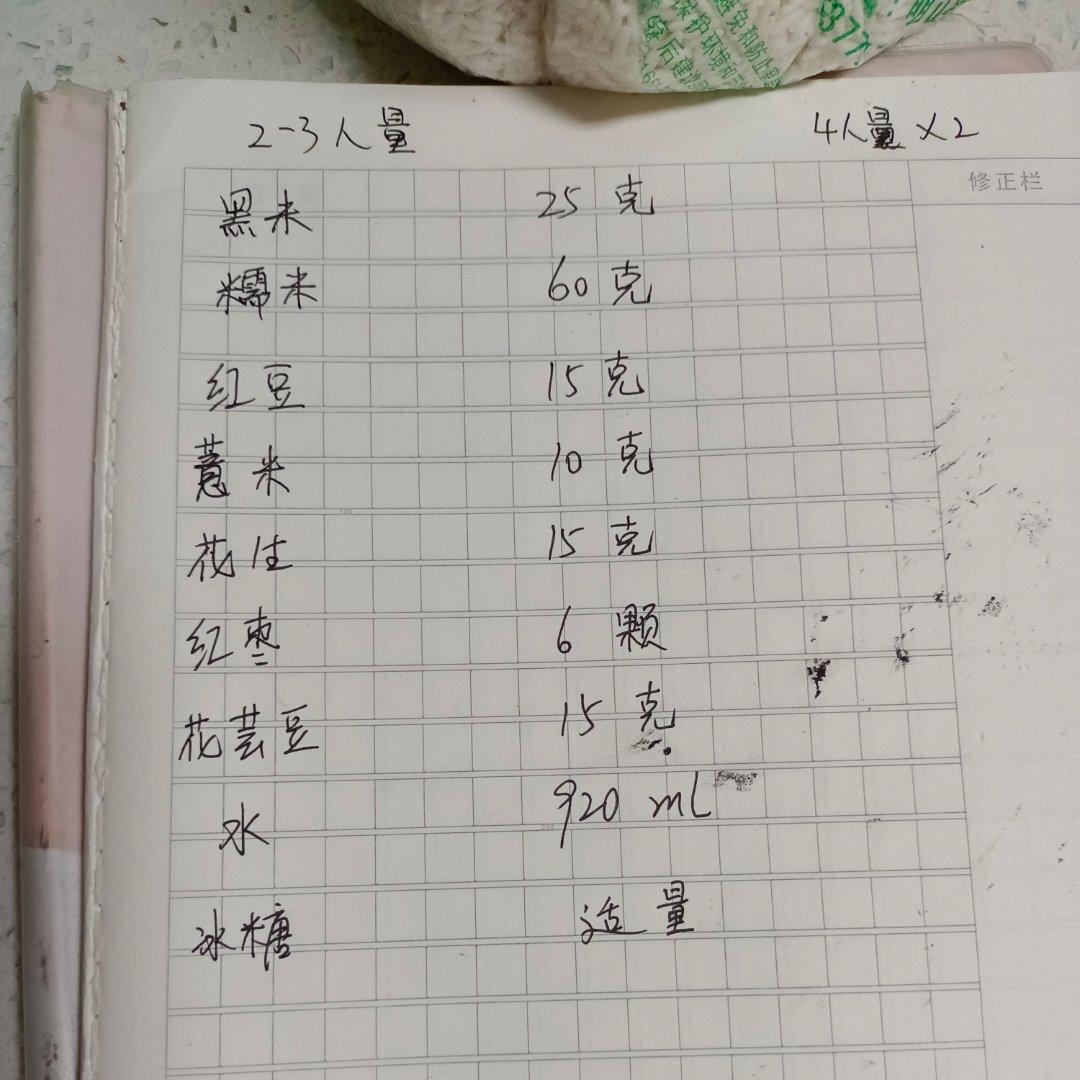 避免和防止
保护环境和
2-3人量 4人量×2
修正栏
黑米 25克
糯米 60克
红豆 15克
薏米 10克
花生 15克
红枣 6颗
花芸豆 15克
水 920ml
冰糖 适量